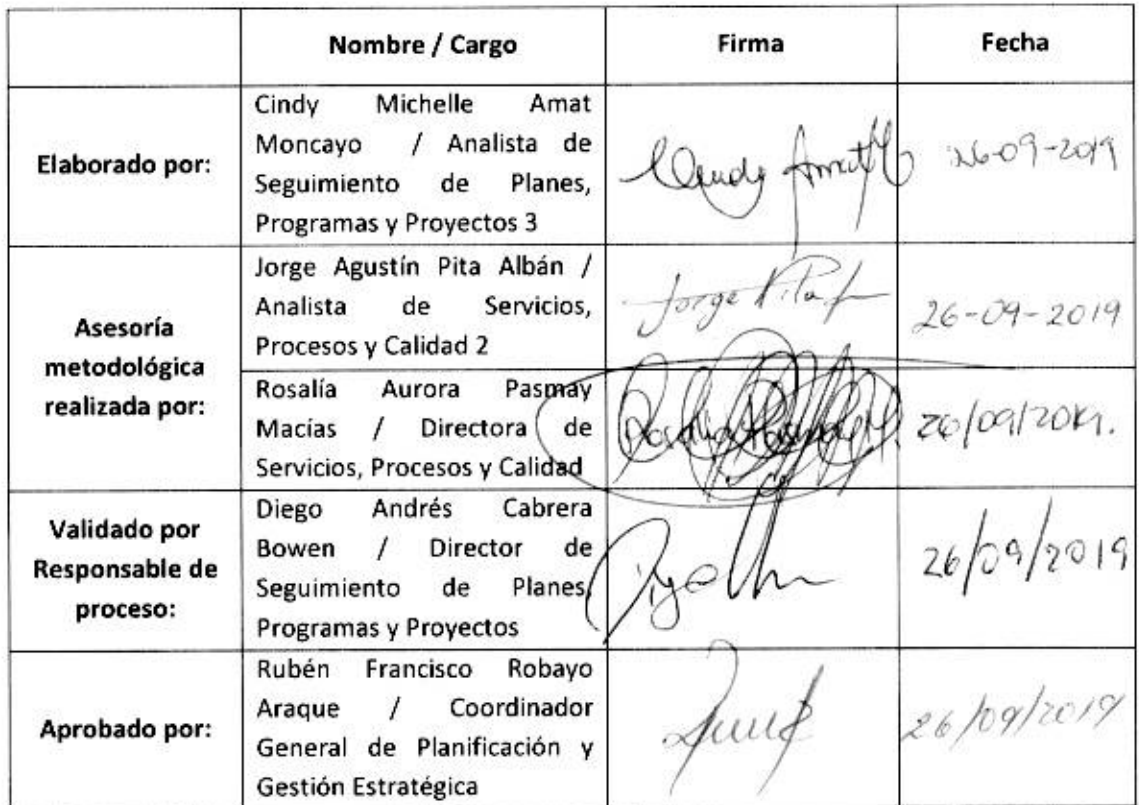 Nombre / Cargo Firma Fecha
Elaborado por:
Cindy Michelle Amat
Moncayo / Analista de
Seguimiento de Planes,
Programas y Proyectos 3
26-09-2019
Asesoría
metodológica
realizada por:
Jorge Agustín Pita Albán /
Analista de Servicios,
Procesos y Calidad 2
Jorge Pita
26-09-2019
Rosalía Aurora Pasmay
Macías / Directora de
Servicios, Procesos y Calidad
26/09/2019.
Validado por
Responsable de
proceso:
Diego Andrés Cabrera
Bowen / Director de
Seguimiento de Planes,
Programas y Proyectos
26/09/2019
Aprobado por:
Rubén Francisco Robayo
Araque / Coordinador
General de Planificación y
Gestión Estratégica
26/09/2019